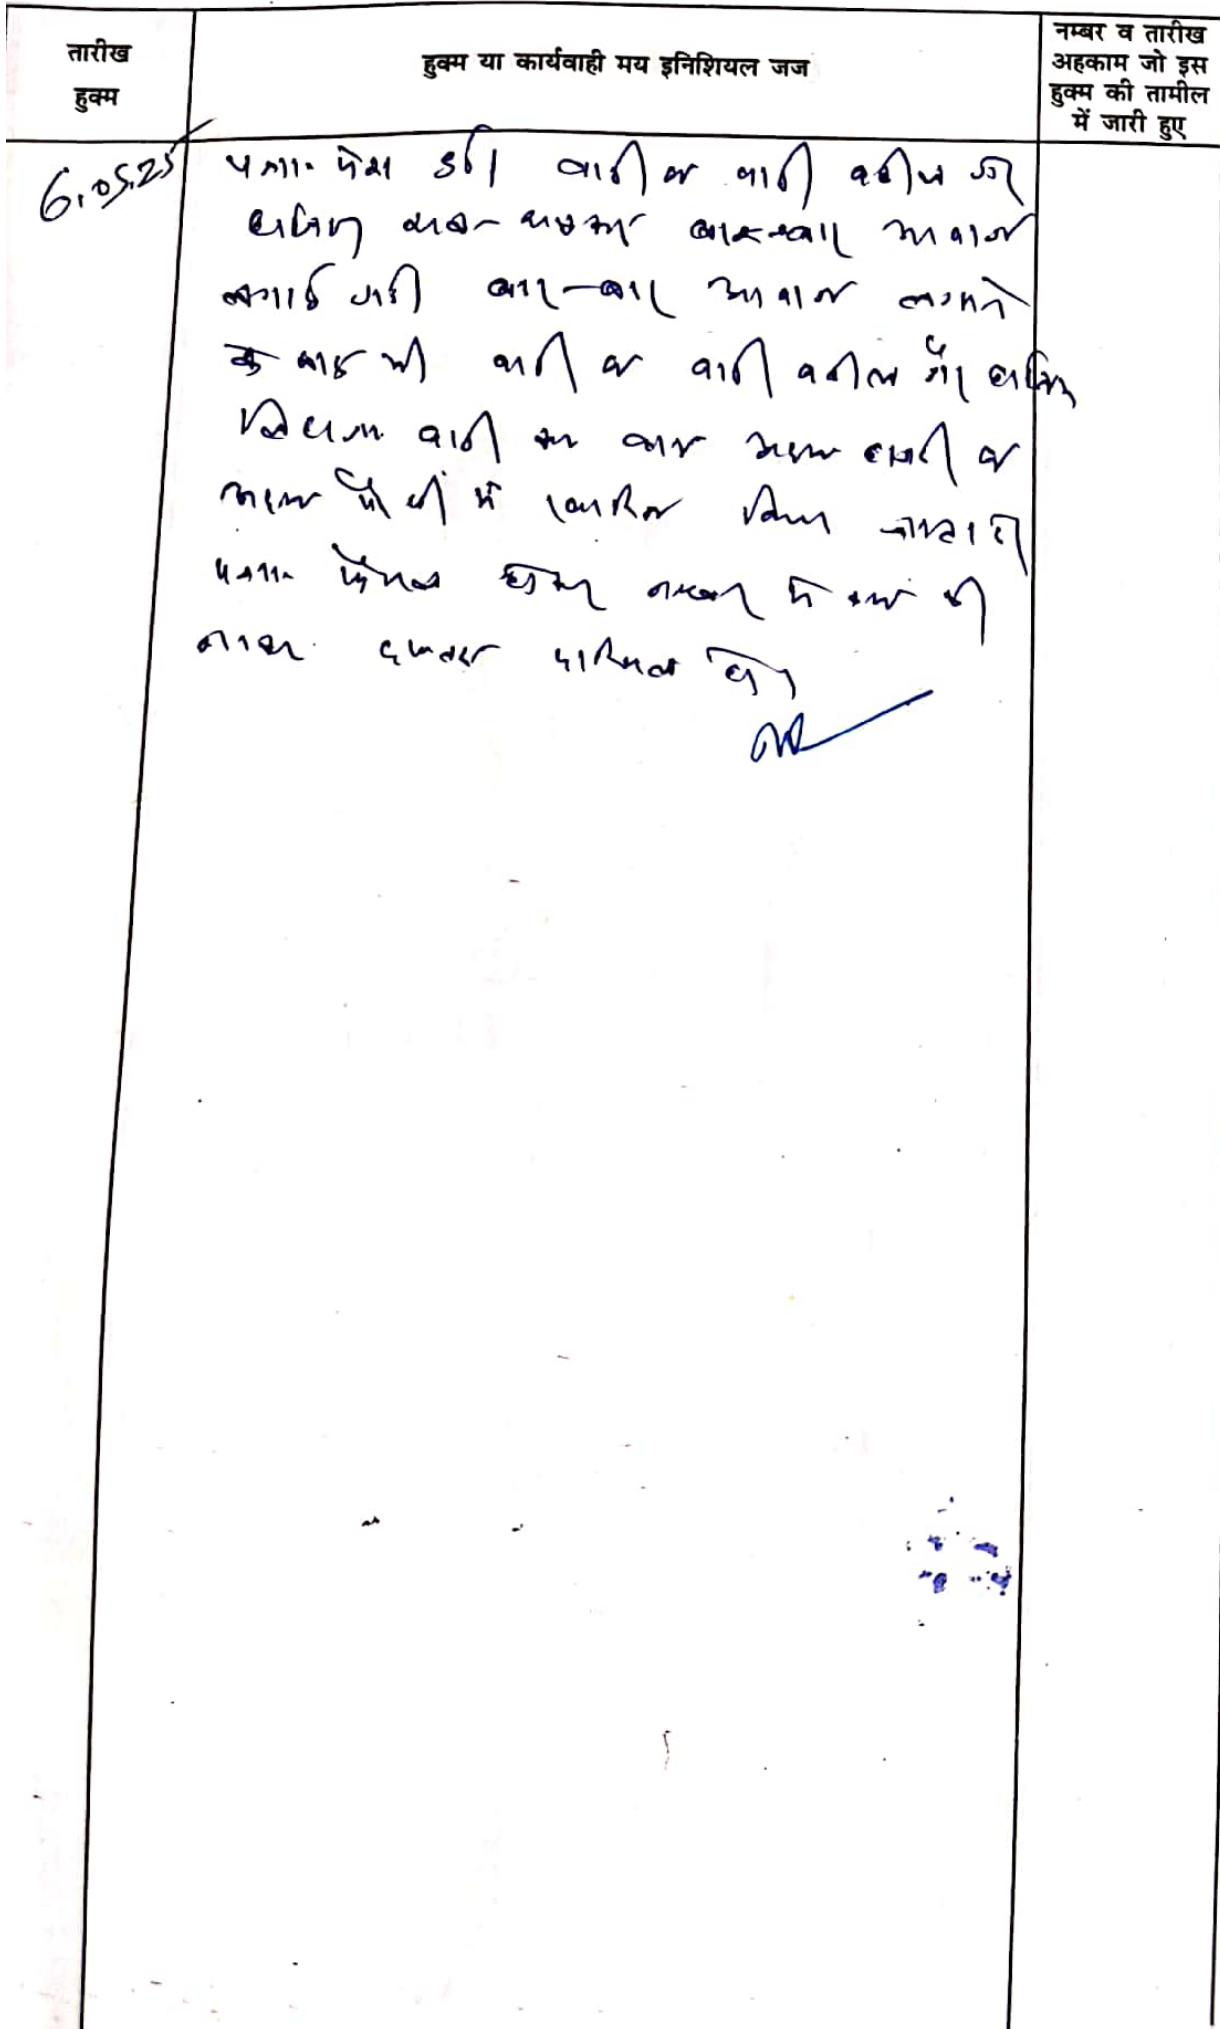 तारीख
हुक्म
हुक्म या कार्यवाही मय इनिशियल जज
नम्बर व तारीख
अहकाम जो इस
हुक्म की तामील
में जारी हुए
6.05.25
पत्रा. पेश हुई। वादी व वादी वकील गैर
हाजिर बार-बार आवाज
लगाई गई बार-बार आवाज लगाने
के बाद भी वादी व वादी वकील गैर हाजिर
लिहाजा वादी का वाद अदम हाजरी व
अदम पैरवी में खारिज किया जाता है
पत्रा. फैसल होकर नम्बर से कम हो
बाद दफ्तर दाखिल हो।